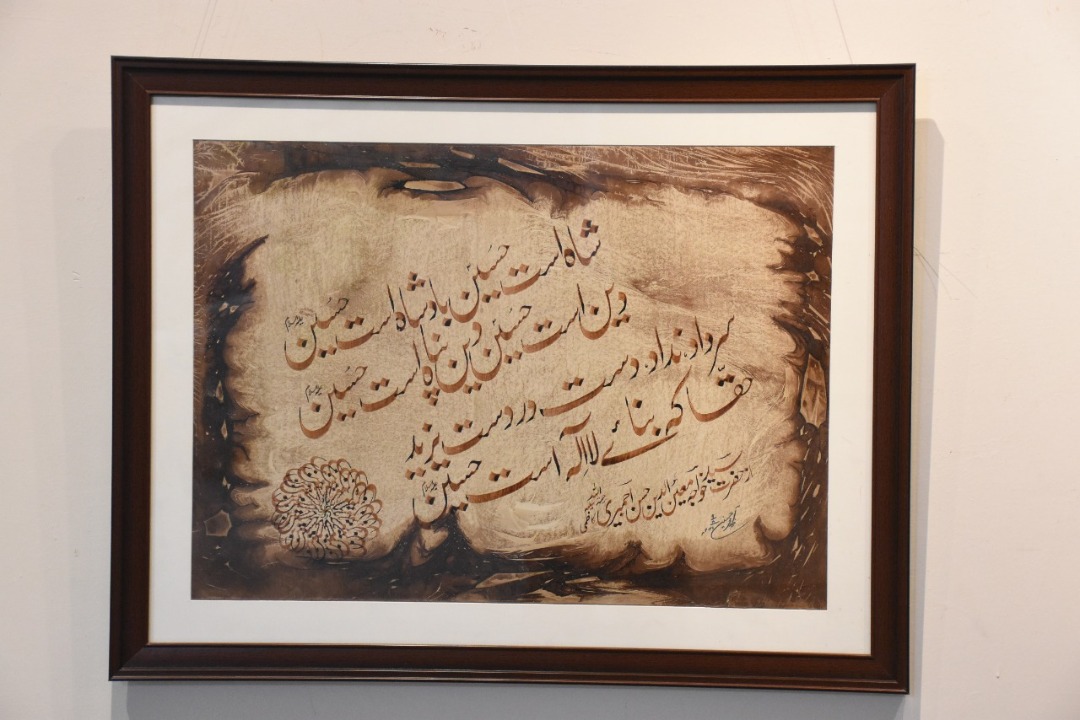 شاہ است حسین بادشاہ است حسین
دین است حسین دین پناہ است حسین
سرداد، نداد، دست در دست یزید
حقا کہ بنائے لاالہ است حسین
از حضرت سید خواجہ معین الدین حسن اجمیری